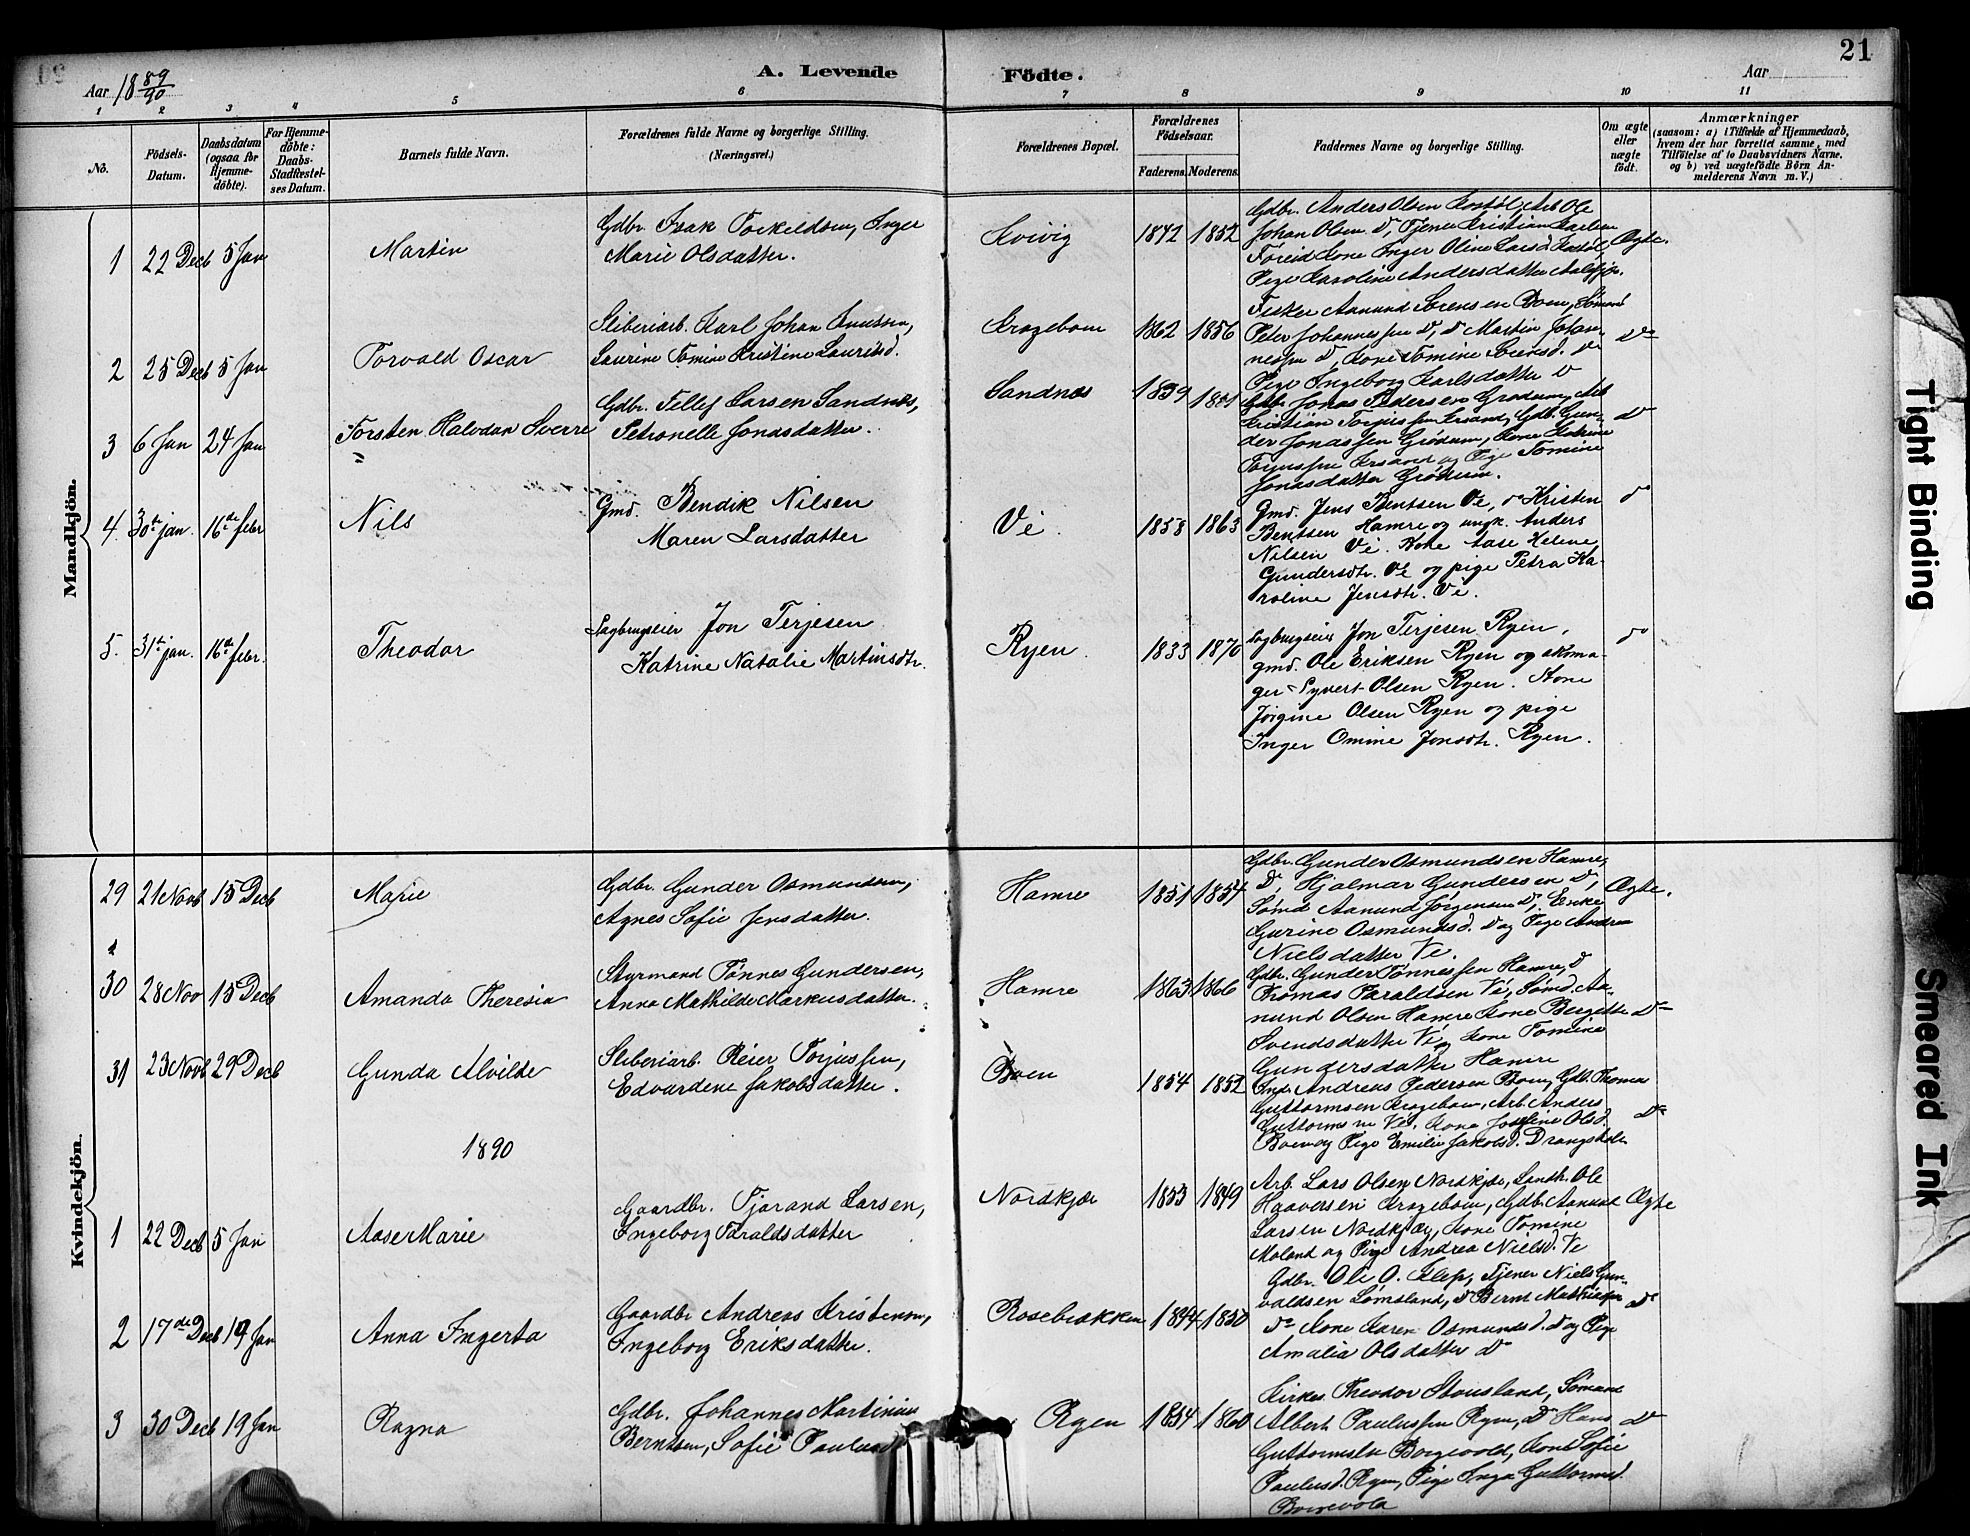 21
Aar 18 89/90
A. Levende Födte.
Aar
1 2 3 4 5 6 7 8 9 10 11
No.
Födsels-Datum.
Daabsdatum (ogsaa for Hjemme-döbte).
For Hjemme-döbte: Daabs-Stadfæstel-ses Datum.
Barnets fulde Navn.
Forældrenes fulde Navne og borgerlige Stilling. (Næringsvei.)
Forældrenes Bopæl.
Forældrenes Födselsaar.
Faderens. Moderens.
Faddernes Navne og borgerlige Stilling.
Om ægte eller uægte födt.
Anmærkninger
(saasom: a) i Tilfælde af Hjemmedaab,
hvem der har forrettet samme, med
Tilföielse af to Daabsvidners Navne,
og b) ved uægtefödte Börn An-
melderens Navn m. V.)
Mandkjön.
1 22 Decb 5 Jan
Martin
Gdbr. Isak Torkildsen, Inger
Marie Olsdatter.
Kvivig
1842 1852
Gdbr. Anders Olsen Kostöl, Arb Ole
Johan Olsen Do, Tjener Kristian Karlsen
Föreid Kone Inger Oline Larsd Kostöl,
Pige Karoline Andersdatter
Ægte.
2 25 Decb 5 Jan
Torvald Oscar
Sliberiarb. Karl Johan Knutsen,
Laurine Tomine Kristine Lauritsd.
Kragebom
1862 1856
Fisker Aanund Sörensen Boen, Sömand
Peter Johannessen Do, Do Martin Johan
nessen Do, Kone Tomine Sörensd. Do
Pige Ingeborg Karlsdatter Do
Do
3 6 Jan 24 Jan
Torsten Halvdan Sverre
Gdbr. Tellef Larsen Sandnæs,
Petronelle Jonasdatter.
Sandnæs
1859 1851
Gdbr. Jonas Pedersen Grödum, Arb
Kristian Torjussen Krsand, Gdb. Gun-
der Jonassen Grödum, Kone Katrine
Torjussen Krsand og Pige Tomine
Jonasdatter Grödum.
Do
4. 30te jan. 16de febr
Nils
Gmd. Bendik Nilsen
Maren Larsdatter
Ve.
1858 1863
Gmd. Jens Bentsen Ve, do Kristen
Bentsen Hamre og ungk. Anders
Nilsen Ve. Kone Aase Helene
Gundersdtr. Ve og pige Petra Ka-
roline Jensdtr. Ve.
do
5. 31te jan. 16de febr.
Theodor
Sagbrugseier Jon Terjesen
Katrine Natalie Martinsdtr.
Ryen.
1833 1870
Sagbrugseier Jon Terjesen Ryen,
gmd. Ole Eriksen Ryen og skoma-
ger Syvert Olsen Ryen. Kone
Jörgine Olsen Ryen og pige
Inger Omine Jonsdtr. Ryen.
do
Kvindekjön.
29 21 Novb 15 Decb
Marie
Gdbr. Gunder Osmundsen,
Agnes Sofie Jensdatter.
Hamre
1851 1854
Gdbr. Gunder Osmundsen Hamre,
Do, Hjalmar Gundersen Do,
Sömd Aanund Jörgensen Do, Enke
Gurine Osmundsd. Do og Pige Andrea
Nielsdatter Ve.
Ægte.
30 28 Nov 15 Decb
Amanda Theresia
Styrmand Tönnes Gundersen,
Anna Mathilde Markusdatter.
Hamre
1863 1866
Gdbr. Gunder Tönnessen Hamre, Do
Thomas Taraldsen Ve, Sömd. Aa-
nund Olsen Hamre Kone Bergitte
Svendsdatter Ve, Kone Tomine
Gundersdatter Hamre
Do
31 23 Novb 29 Decb
Gunda Alvilde
Sliberiarb. Reier Torjussen,
Edvardene Jakobsdatter.
Boen
1854 1852
Andreas Pedersen Boen, Gdb. Thomas
Guttormsen Kragebom, Arb. Anders
Guttormsen Ve, Kone Josefine Olsd.
Boen og Pige Emilie Jakobsd. Drangsholt
Do
1890
1 22 Decb 5 Jan
Aase Marie
Gaardbr. Tjarand Larsen,
Ingeborg Taraldsdatter
Nordkjær
1853 1849
Arb. Lars Olsen Nordkjær, Landh. Ole
Haaversen Kragebom, Gdb. Aanund
Larsen Nordkjær, Kone Tomine
Moland og Pige Andrea Nielsd. Ve
Ægte
2 17de Decb 19 Jan
Anna Ingerta
Gaardbr Andreas Kristensen,
Ingeborg Eriksdatter.
Rosebrakken
1844 1850
Gdbr. Ole O. Klep, Tjener Niels Gun-
valdsen Lömsland, Do Bernt Mathisen
Do Kone Karen Osmundsd. Do og Pige
Amalia Olsdatter Do
Do
3 30 Decb 19 Jan
Ragna
Gdbr. Johannes Martinius
Berntsen, Sofie
Ryen
1854 1860
Kirkes. Theodor Stousland, Sömand
Albert Paulussen Ryen, Do Hans
Guttormsen Borgevold, Kone Sofie
Paulusd. Ryen, Pige Inga Guttormsd.
Do
Tight Binding
Smeared Ink